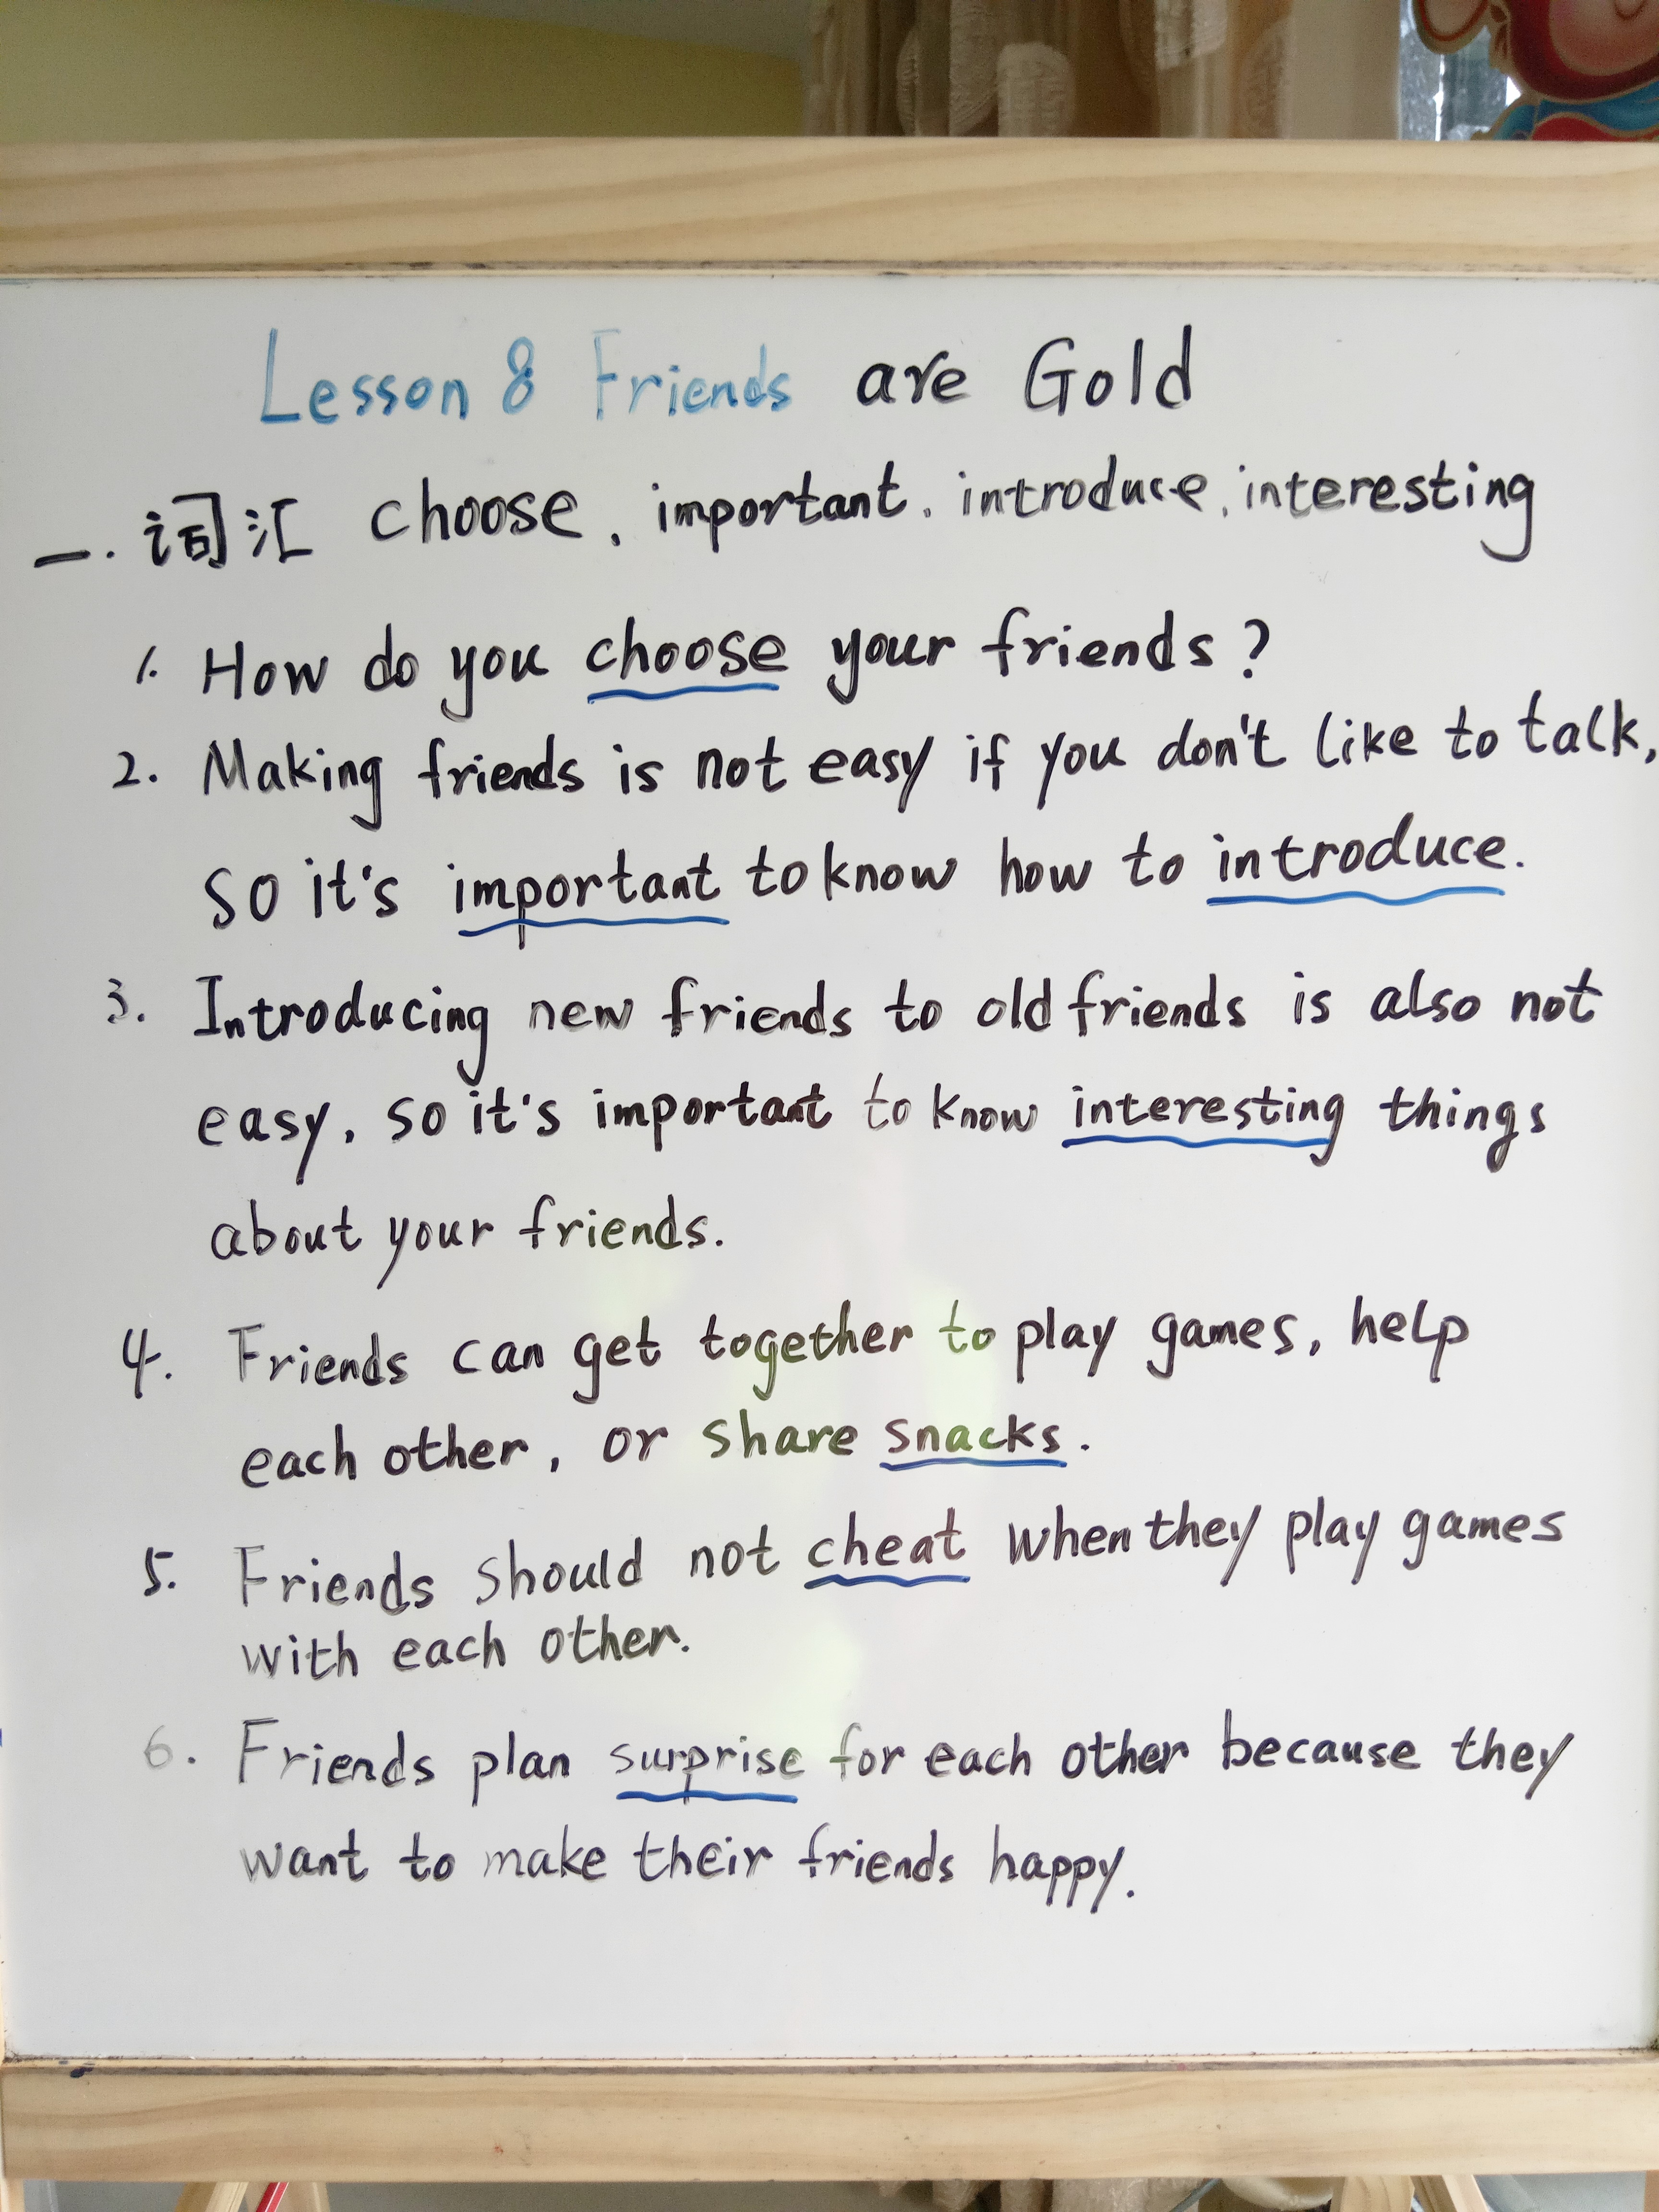 Lesson 8 Friends are Gold
一. 词汇 choose, important, introduce, interesting
1. How do you choose your friends?
2. Making friends is not easy if you don't like to talk,
so it's important to know how to introduce.
3. Introducing new friends to old friends is also not
easy, so it's important to know interesting things
about your friends.
4. Friends can get together to play games, help
each other, or share snacks.
5. Friends should not cheat when they play games
with each other.
6. Friends plan surprise for each other because they
want to make their friends happy.